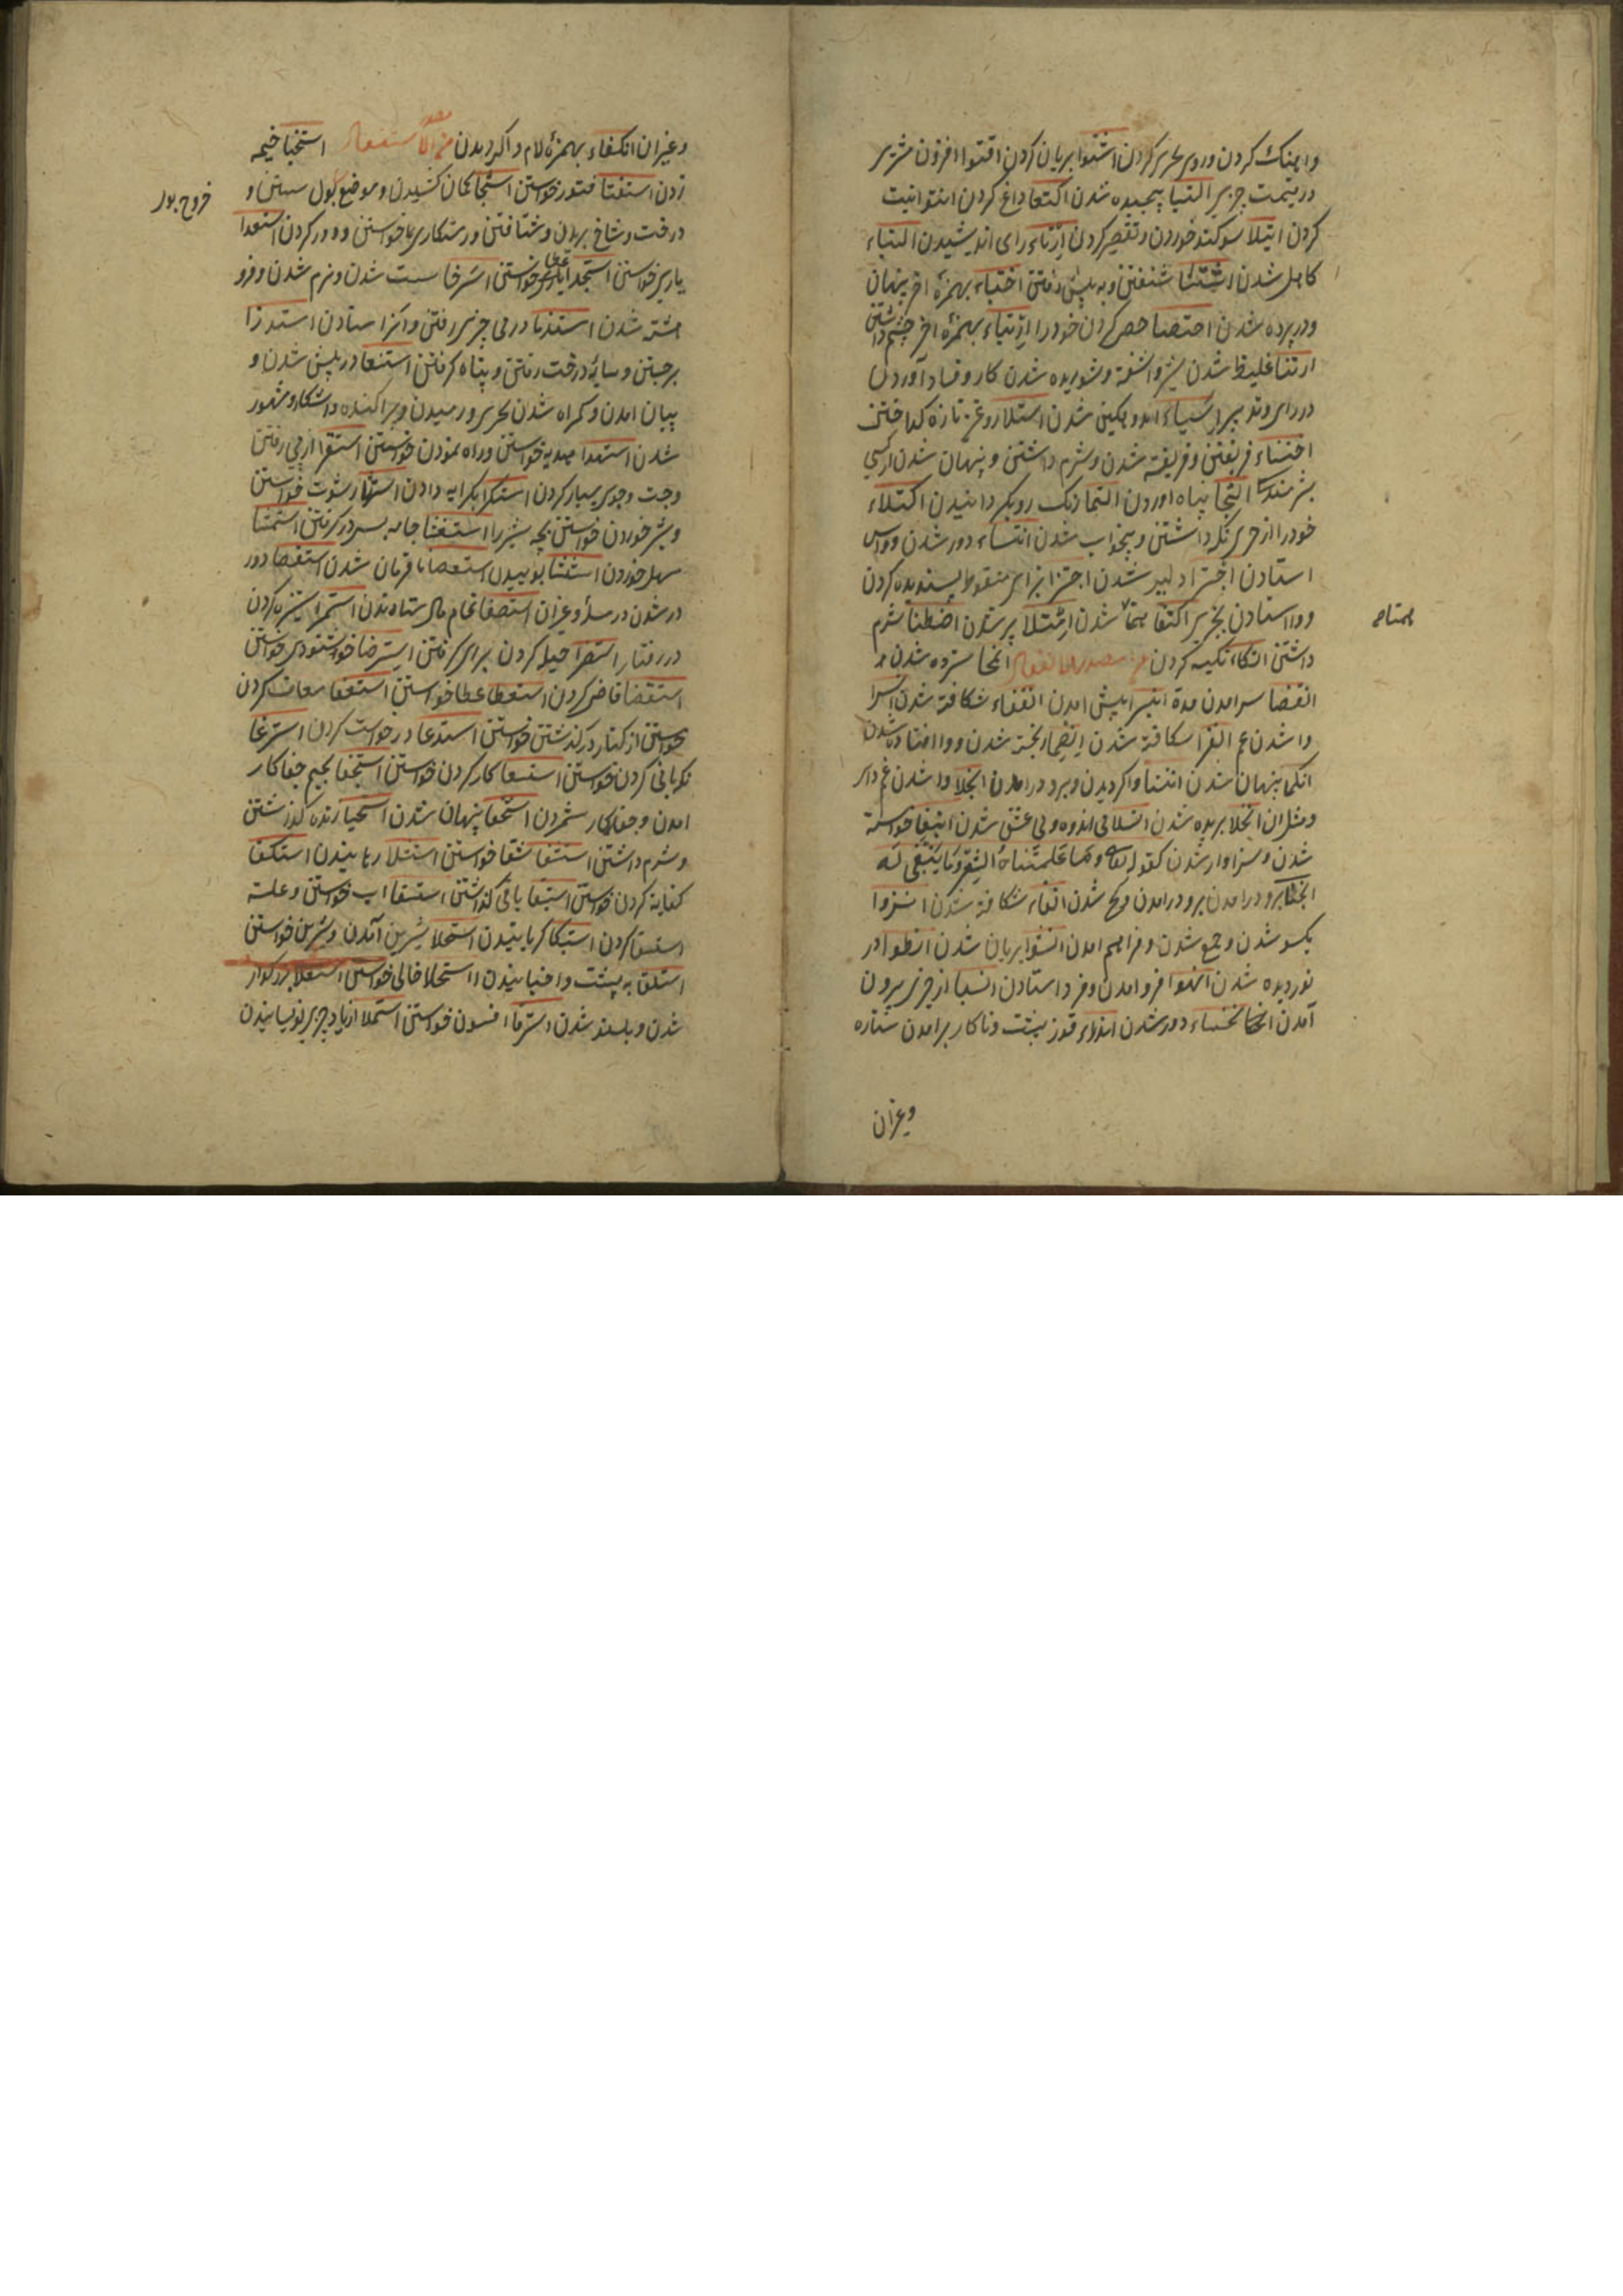 واهنك كردن وروى بحيزى كردن اشتوا بريان كردن اقتوا افزون مشترى
در قيمت چيزى التيا پيچيده شدن اكتوا داغ كردن انتوا نيت
كردن ايتلا سوكند خوردن وتقصير كردن ارتاء راى انديشيدن التباء
كاهل شدن شنفتن و به پيش رفتن اختباء بهمزۀ اخر پنهان
ودر پرده شدن اختصا خصى كردن خود را ارتباء بهمزۀ اخر چشم داشتن
ارتثا غليظ شدن شير واشفته وشوريده شدن كار وفساد آوردن
در راى وتدبير استياء اندوهكين شدن استلا روغن تازه كداختن
اختتاء فريفتن وفريفته شدن وشرم داشتن وپنهان شدن از كسى
بشرمندكى التجا پناه اوردن التما رنك روى بكردانيدن اكتلاء
خود را از چيزى نكه داشتن وبيخواب شدن انتساء دور شدن وواپس
استادن اجترا دلير شدن اجتزا بزاى منقوط بسنده كردن
ووا استادن بچيزى اكتفا شدن امتلا پر شدن اضطنا شرم
داشتن اتكاء تكيه كردن من مصدر باب انفعال انمحا سترده شدن
انقضا سر امدن مدة انبرا پيش امدن انفقاء شكافته شدن انسرا
وا شدن غم انفرا شكافته شدن ريخته شدن ووا افتاده شدن
انكما پنهان شدن انثنا واكرديدن وبرو در امدن انجلا وا شدن غم دار
ومثل ان انخلا بريده شدن انسلا بى اندوه وبى عشق شدن انبغا خواسته
شدن وسزاوار شدن كقوله تعالى وَمَا عَلَّمْنَاهُ الشِّعْرَ وَمَا يَنْبَغِى لَهُ
برو در امدن برو در امدن وكج شدن انفاء شكافته شدن انزوا
بكسو شدن وجمع شدن وفراهم امدن انشوا بريان شدن انطوا در
نورديده شدن انهوا فرو امدن وفرو استادن انسبا از چيزى بيرون
آمدن انخساء دور شدن قوز پشت وناكاه بر امدن ستاره
وغيران
همتاه
وغيران انكفاء بهمزۀ لام واكرديدن من مصدر الاستفعال استخبا خيمه
زدن استفتا فتوى خواستن استنجا كمان كشيدن وموضع بول شستن و
درخت وشاخ بريدن وشتافتن ورستكارى خواستن ودور كردن استعدا
يارى خواستن استجدا عطا خواستن استرخا سست شدن ونرم شدن وفرو
هشته شدن در پى چيزى رفتن وانرا ستادن استذرا
برجستن وسايۀ درخت رفتن وپناه كرفتن استنعا در پيش شدن و
بيابان امدن وكمراه شدن بحيرى ورميدن وپراكنده واشكار ومشهور
شدن استهدا هديه خواستن وراه نمودن خواستن استقرا از پى رفتن
وجست وجوى بسيار كردن استكرا بكرايه دادن استرشا رشوت خواستن
وشير خوردن خواستن بچه شير را استغشا جامه بسر در كرفتن استمشا
مسهل خوردن استنشا بوييدن استعصا نا فرمان شدن استقصا دور
در شدن در مسأله وغيران استصفا تمام مال ستاندن استمرا ستيزه كردن
در رفتار حيله كردن براى كرفتن استرضا خوشنودى خواستن
استقضا قاضى كردن استعطا عطا خواستن استعفا معاف كردن
خواستن از كفتار در كذشتن خواستن استدعا درخواست كردن استرعا
نكهبانى كردن خواستن استسعا كار كردن خواستن استجفا بجيم جفا كار
امدن وجفاكار شمردن استخفا پنهان شدن استحيا زنده كذشتن
وشرم داشتن استشفا شفا خواستن رهانيدن استكفا
كفايه كردن خواستن استبقا باقى كذاشتن استسقا اب خواستن وعلت
استسقا كردن استبكا كريانيدن استحلا شيرين آمدن وشيرين خواستن
استلقا به پشت وا خسبانيدن استخلا خالى خواستن استعلا بزركوار
شدن وبلند شدن استرقا افسون خواستن استملا از ياد چيزى نويسانيدن